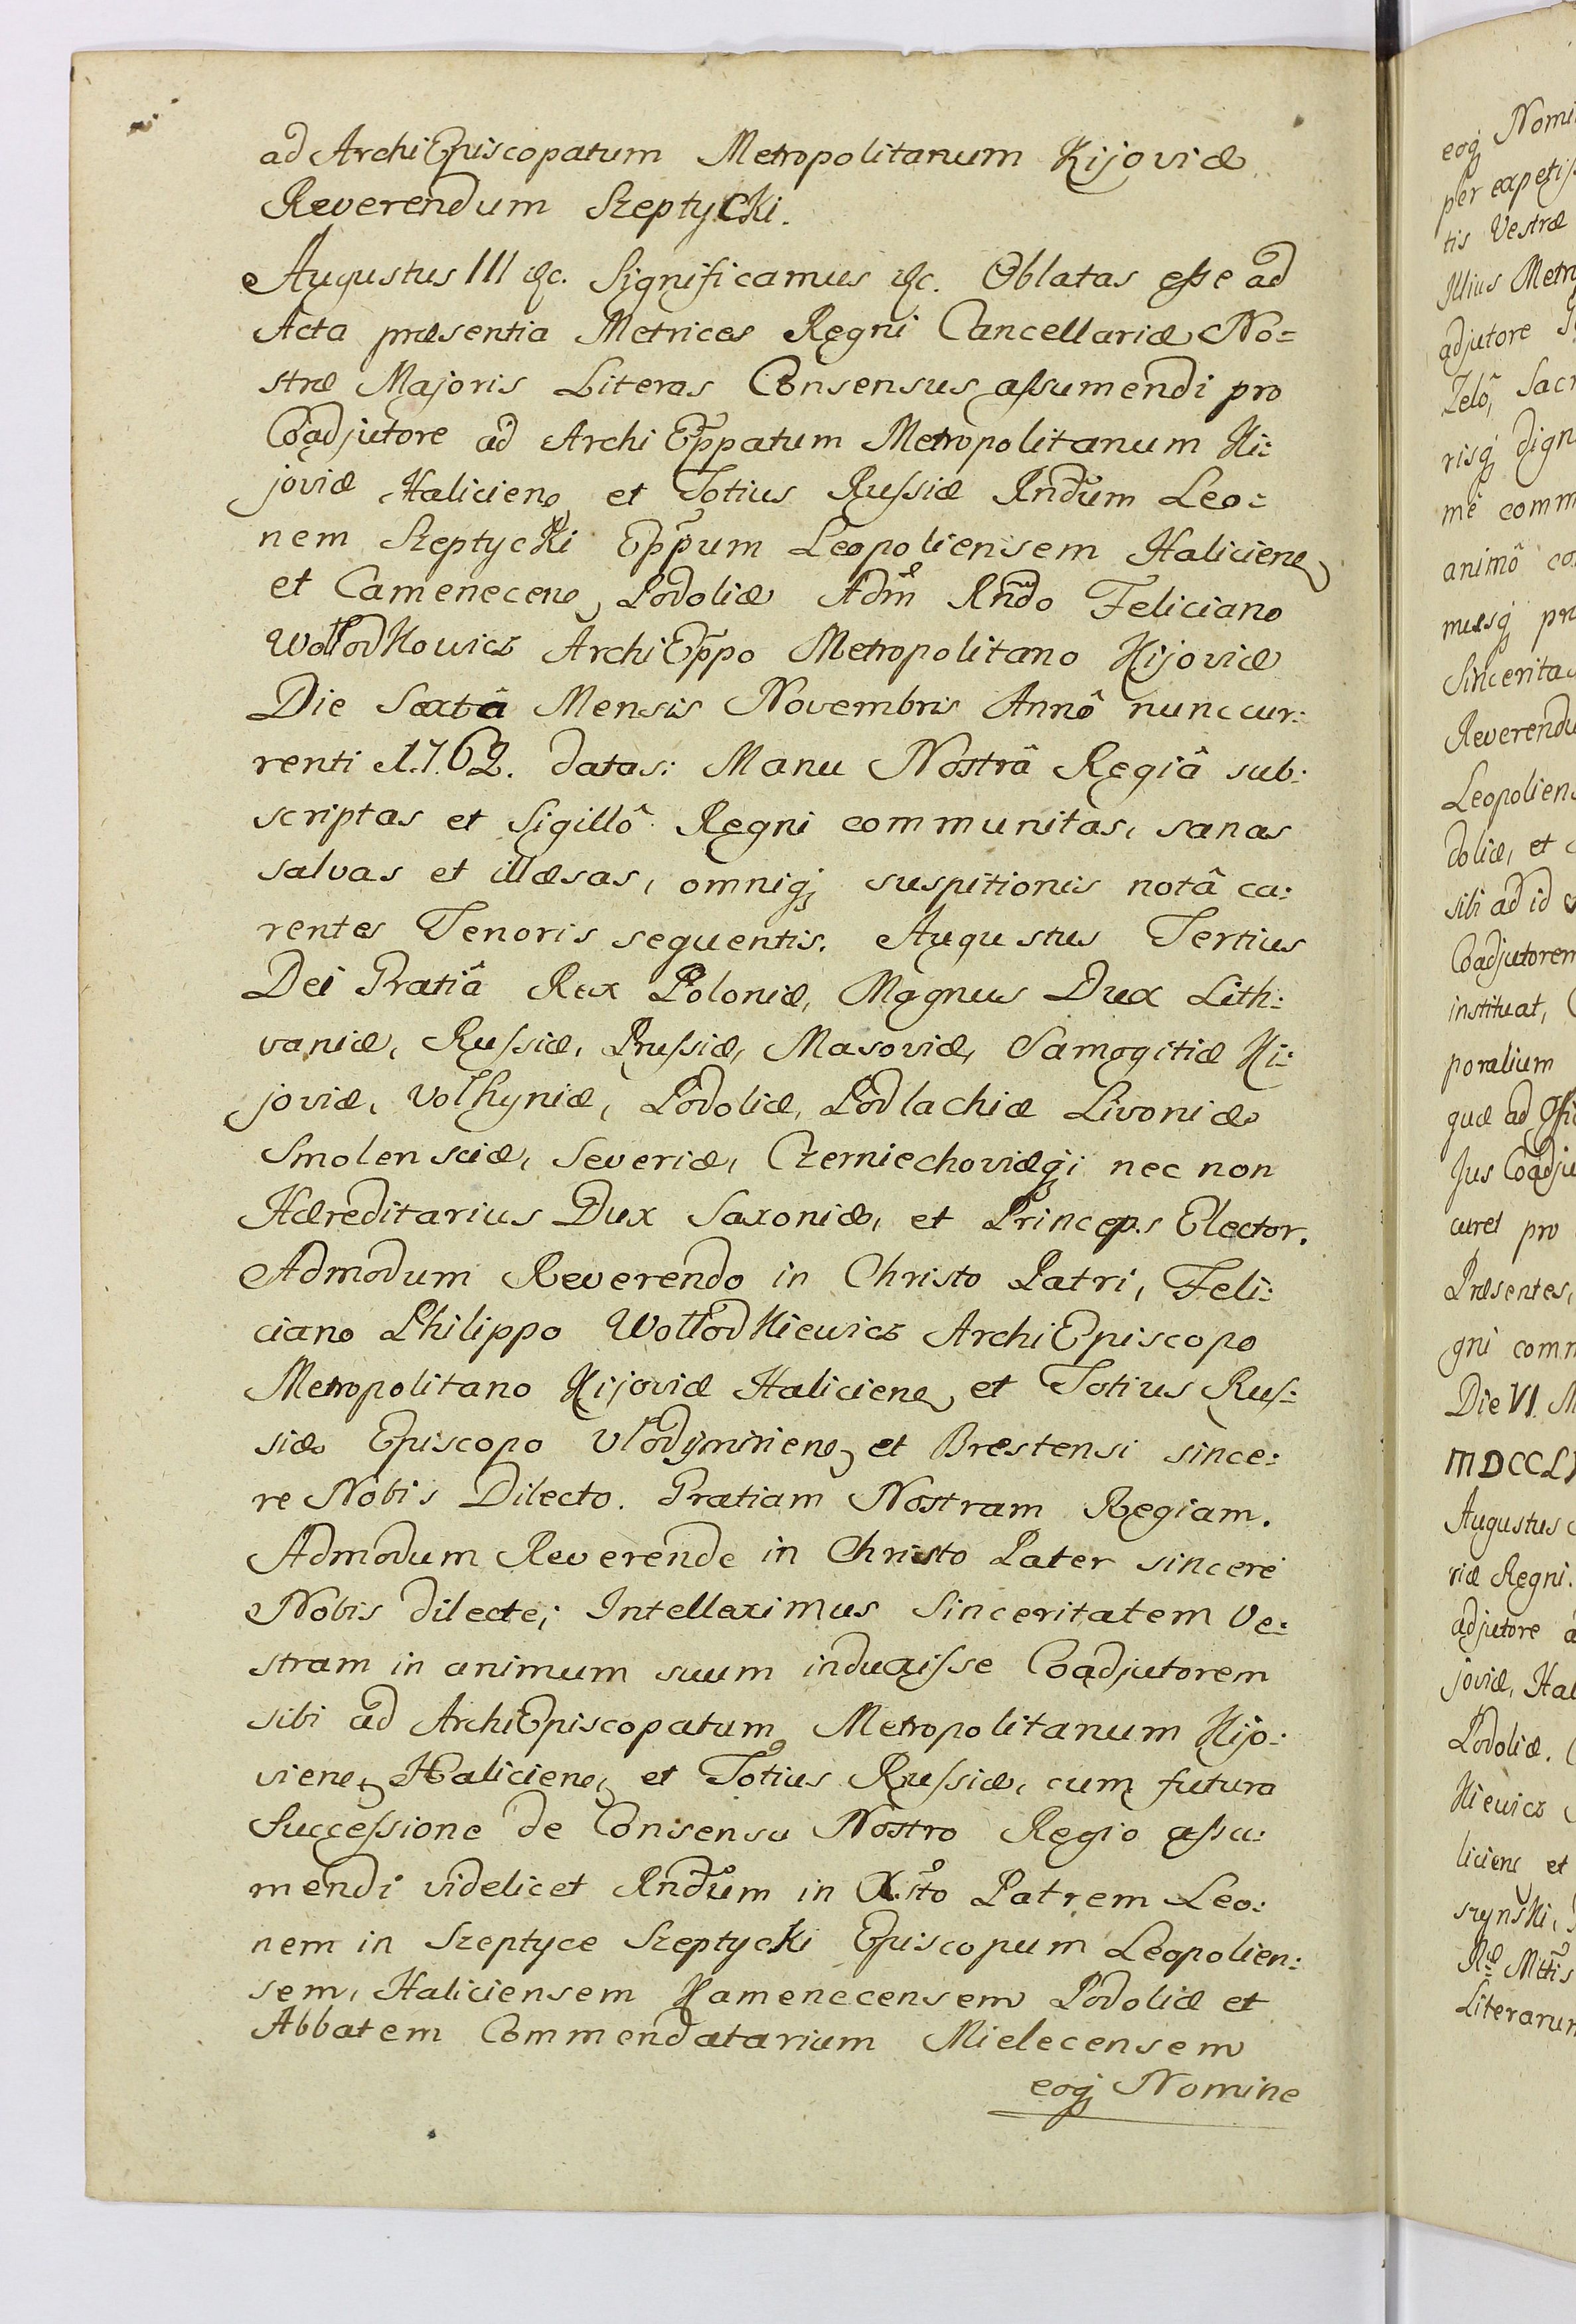 ad ArchiEpiscopatum Metropolitanum Kijoviæ
Reverendum Szeptycki.
Augustus III &c. Significamus &c. Oblatas eſse ad
Acta præsentia Metrices Regni Cancellariæ No=
stræ Majoris Literas Consensus aſsumendi pro
Coadjutore ad Archi Epp̃atum Metropolitanum Ki:
joviæ Halicien et Totius Ruſsiæ Rndum Leo:
nem Szeptycki Epp̃um Leopoliensem Halicien
et Camenecen Podoliæ Adm Rndo Feliciano
Wołłodkowicz ArchiEpp̃o Metropolitano Kijoviæ
Die Sextâ Mensis Novembris Annô nunc cur:
renti 1762. datas: Manu Nostrâ Regiâ sub:
scriptas et Sigillô Regni communitas, sanas
salvas et illæsas, omniq; suspitionis notâ ca:
rentes Tenoris sequentis. Augustus Tertius
Dei Gratiâ Rex Poloniæ, Magnus Dux Lith:
vaniæ, Ruſsiæ, Pruſsiæ, Masoviæ, Samogitiæ Ki:
joviæ, Volhyniæ, Podoliæ, Podlachiæ Livoniæ
Smolensciæ, Severiæ, Czerniechoviæq; nec non
Hæreditarius Dux Saxoniæ, et Princeps Elector.
Admodum Reverendo in Christo Patri, Feli:
ciano Philippo Wołłodkiewicz ArchiEpiscopo
Metropolitano Kijoviæ Halicien et Totius Ruſ:
siæ Episcopo Vlodymirien et Brestensi since:
re Nobis Dilecto. Gratiam Nostram Regiam.
Admodum Reverende in Christo Pater sincere
Nobis dilecte; Intelleximus Sinceritatem Ve:
stram in animum suum induxiſse Coadjutorem
sibi ad ArchiEpiscopatum Metropolitanum Kijo:
vien Halicien et Totius Ruſsiæ, cum futura
Succeſsione de Consensu Nostro Regio aſsu:
mendi videlicet Rndum in Xsto Patrem Leo:
nem in Szeptyce Szeptycki Episcopum Leopolien:
sem, Haliciensem Kamenecensem Podoliæ et
Abbatem Commendatarium Mielecensem
eoq; Nomine
eoq; Nomi
per expetiſ
tis Vestræ
Illius Metr
adjutore
Zelô, Sacr
risq; dign
mè comm
animô co
musq; pr
Sincerita
Reverendu
Leopoliens
doliæ, et
sibi ad id
Coadjutorem
instituat,
poralium
quæ ad Offi
Jus Coadju
curet pro
Præsentes,
gni comm
Die VI. M
MDCCL
Augustus
riæ Regni.
adjutore a
joviæ, Hal
Podoliæ.
kiewicz
licien et
szynski,
Literarum